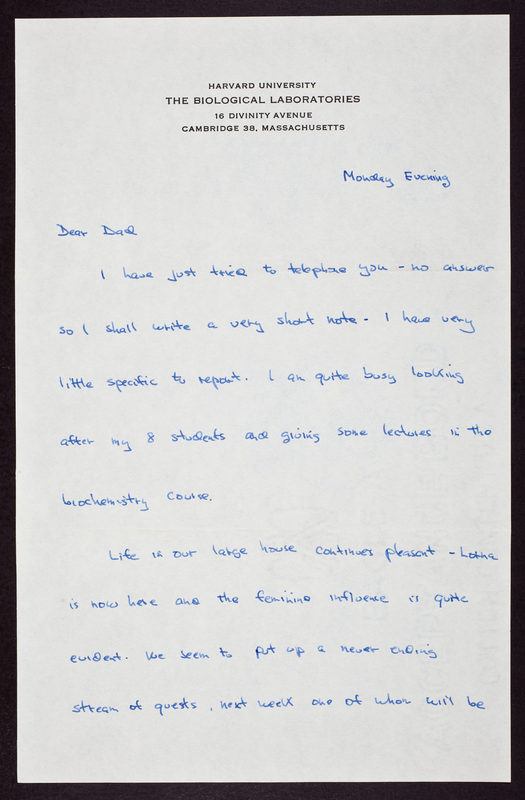 HARVARD UNIVERSITY
THE BIOLOGICAL LABORATORIES
16 DIVINITY AVENUE
CAMBRIDGE 38, MASSACHUSETTS
Monday Evening
Dear Dad
I have just tried to telephone you - no answer
so I shall write a very short note - I have very
little specific to report. I am quite busy looking
after my 8 students and giving some lectures in the
biochemistry course.
Life in our large house continues pleasant - Lorna
is now here and the feminine influence is quite
evident. We seem to put up a never ending
stream of guests, next week one of whom will be